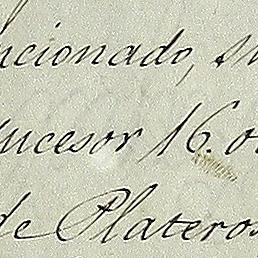 ncionado, su
ucesor 16. o
de Plateros